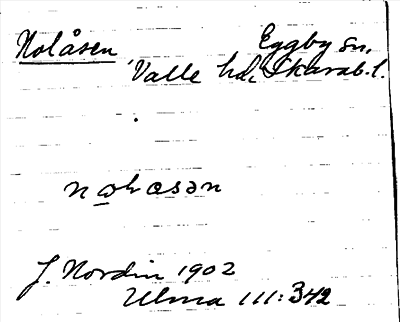 Nolåsen Eggby sn,
Valle hd, Skarab. l.
J. Nordin 1902
Ulma 111:342